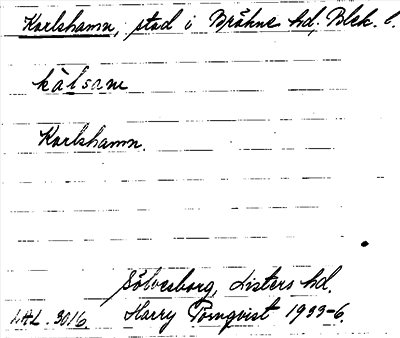 Karlshamn, stad i Bräkne hd, Blek. l.
kàlsam
Karlshamn.
Sölvesborg, Listers hd.
LAL. 3016. Harry Törnqvist 1933-6.